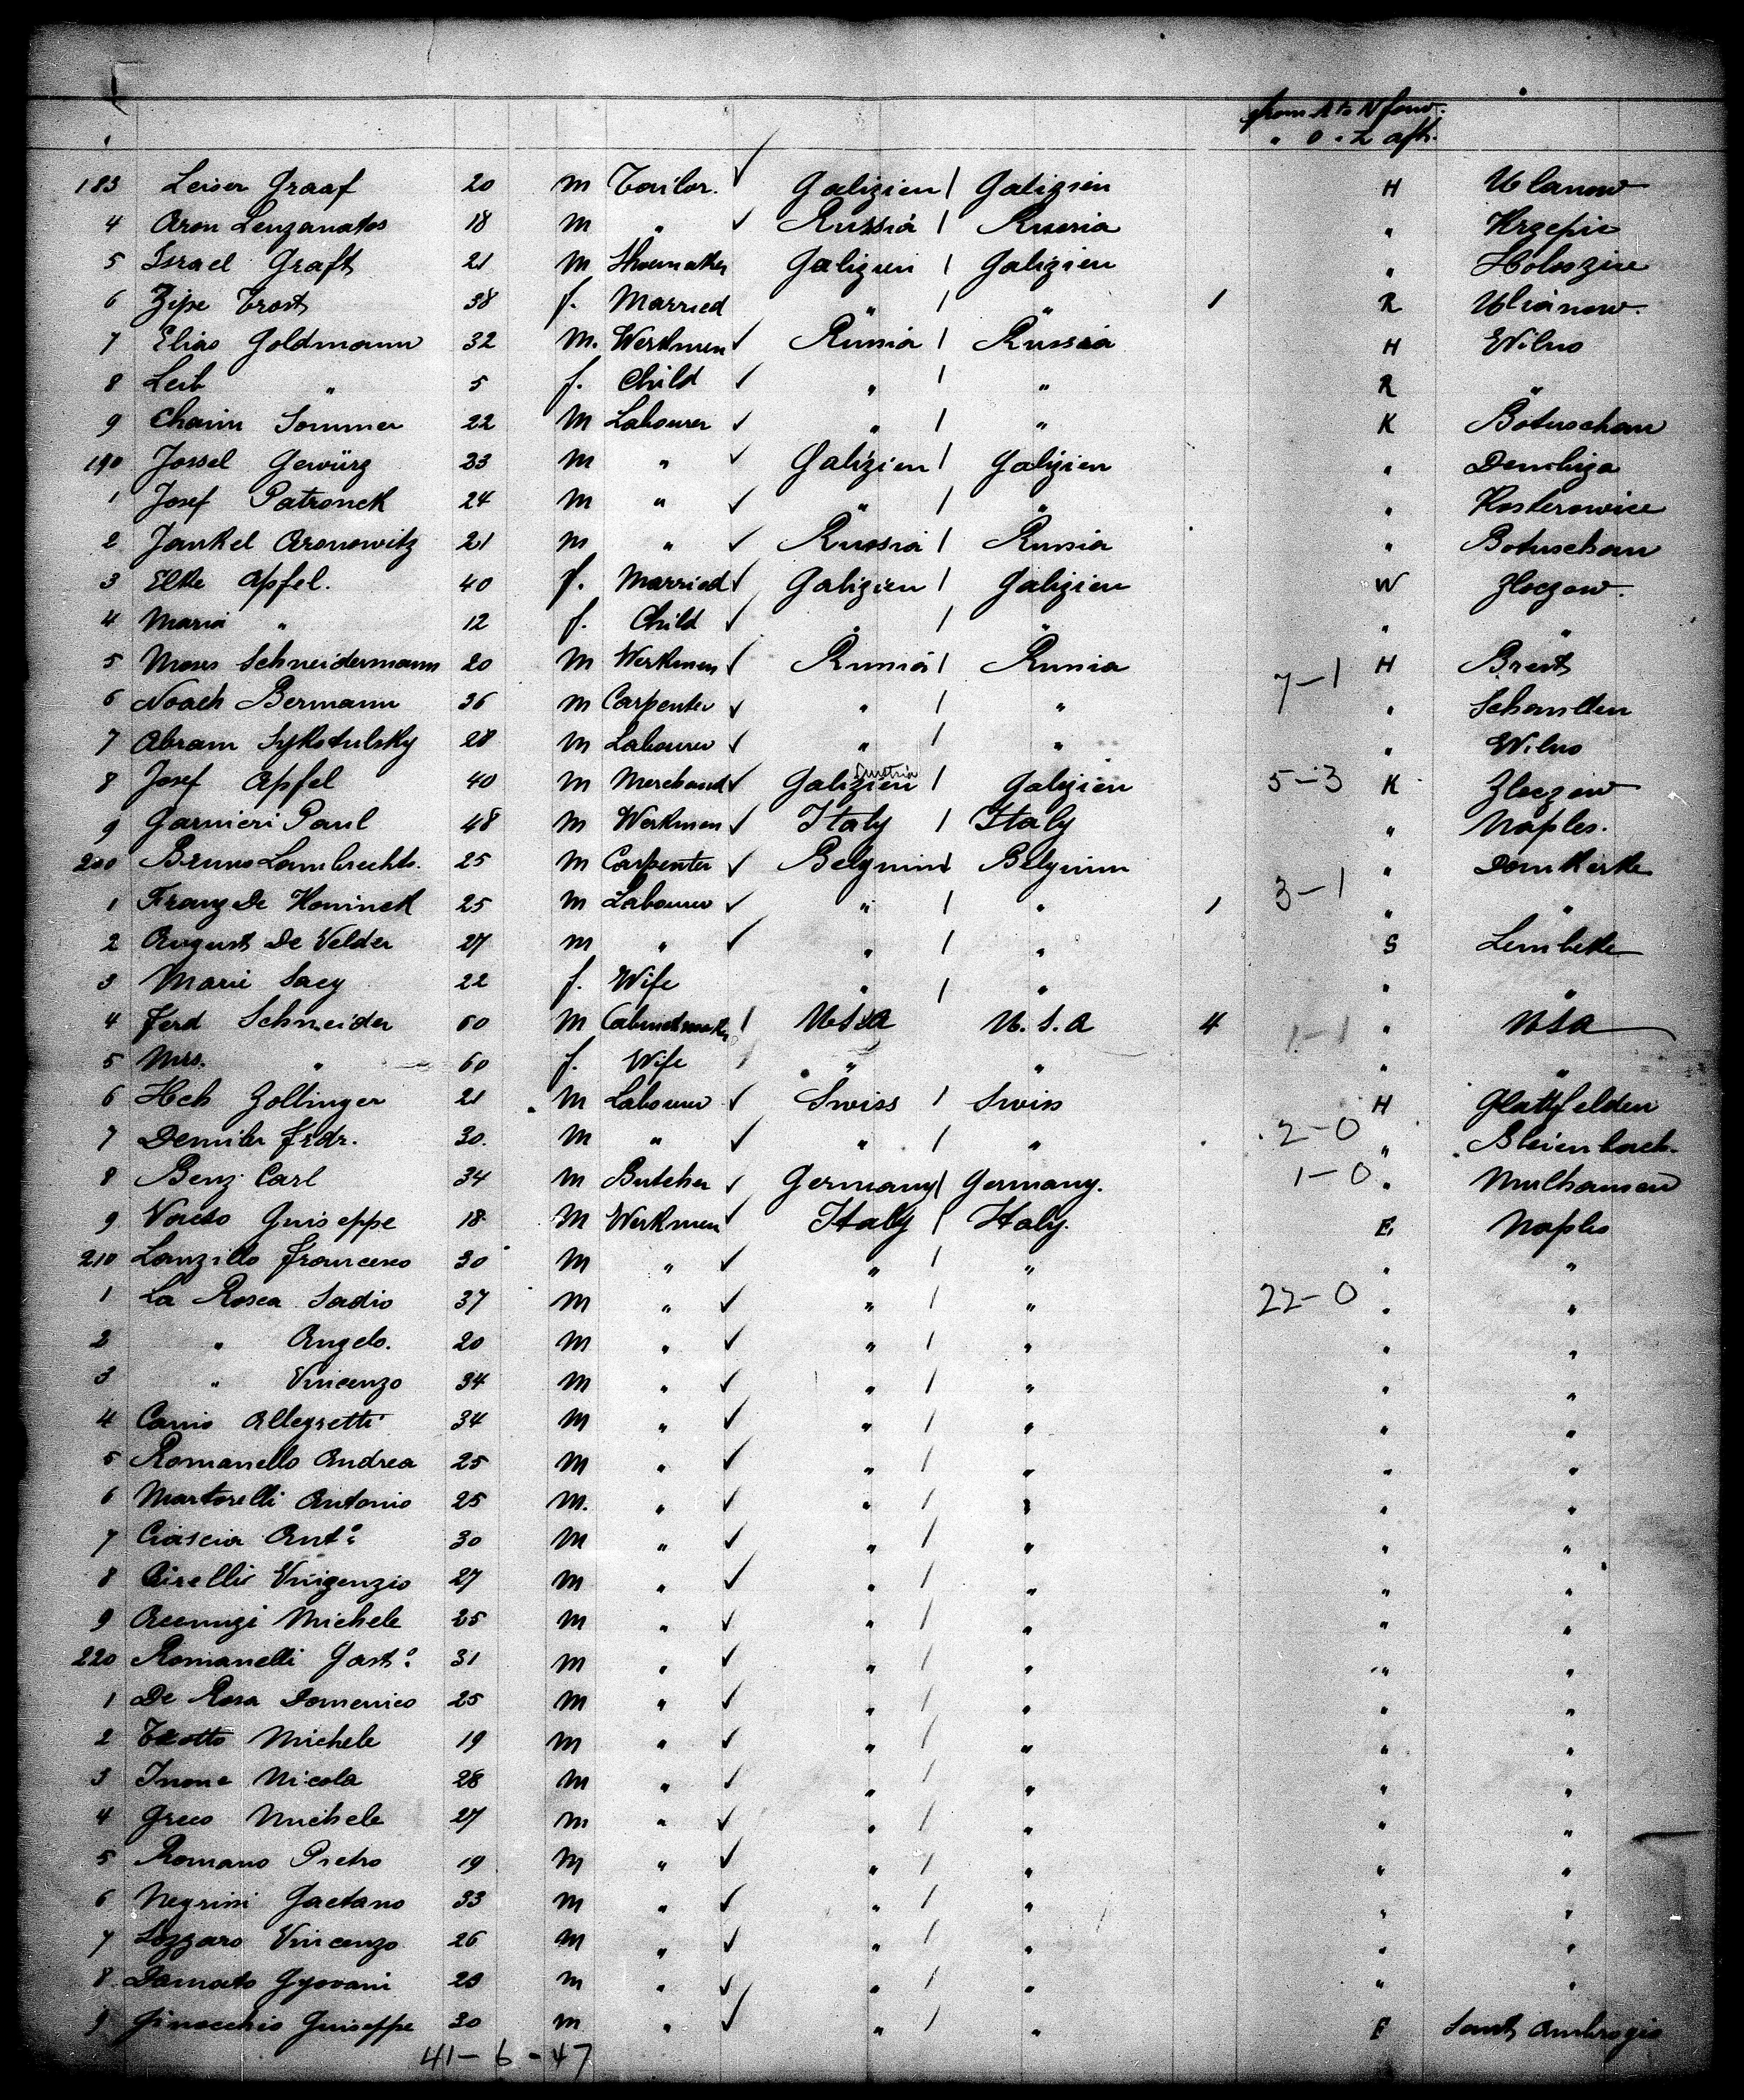 from A to N forw.
" O - Z aft.
183 Leiser Graaf 20 m Tailor. ✓ Galizien / Galizien H Ulanow
4 Aron Lenzanatos 18 m " ✓ Russia / Russia " Krzepie
5 Israel Graft 21 m Shoemaker Galizien / Galizien "
6 Zipe Trost 38 f. Married " / " 1 R Ulianow.
7 Elias Goldmann 32 m. Workmen ✓ Russia / Russia H Wilno
8 Leib " 5 f. Child ✓ " / " R "
9 Chaim Sommer 22 m Labourer ✓ " / " K Botuschan
190 Jossel Gewürz 33 m " ✓ Galizien / Galizien " Dembiza
1 Josef Patronek 24 m " ✓ " / " " Kosterowice
2 Jankel Aronowitz 21 m " ✓ Russia / Russia " Botuschan
3 Elke Apfel. 40 f. Married ✓ Galizien / Galizien W Zloczow.
4 Maria " 12 f. Child ✓ " / " " "
5 Moses Schneidermann 20 m Workmen ✓ Russia / Russia 7-1 H Brest
6 Noach Bermann 36 m Carpenter ✓ " / " "
7 Abram Sykotulsky 28 m Labourer ✓ " / " " Wilno
8 Josef Apfel 40 m Merchand ✓ Galizien Austria / Galizien 5-3 K Zloczow
9 Garnieri Paul 48 m Workmen ✓ Italy / Italy " Naples.
200 Bruno Lambrechts. 25 m Carpenter ✓ Belgium / Belgium " Domkerke
1 Franz De Koninck 25 m Labourer ✓ " / " 1 3-1 " "
2 August De Velder 27 m " ✓ " / " S Lembeke
3 Marie Saey 22 f. Wife " / " " "
4 Ferd Schneider 60 m Cabinetmaker / USA U.S.A 4 1-1 " USA
5 Mrs. " 60 f. Wife / " " " "
6 Hch Zollinger 21 m Labourer ✓ Swiss / Swiss H Glattfelden
7 Demiler Frdr. 30. m " ✓ " / " 2-0 " Bleienbach.
8 Benz Carl 34 m Butcher ✓ Germany / Germany. 1-0 " Mulhausen
9 Guiseppe 18 m Workmen ✓ Italy / Italy. E Naples
210 Lanzillo Francesco 30 m " ✓ " / " " "
1 La Rosca Sadio 37 m " ✓ " / " 22-0 " "
2 " Angelo. 20 m " ✓ " / " " "
3 " Vincenzo 34 m " ✓ " / " " "
4 Canio Allegretti 34 m " ✓ " / " " "
5 Romanello Andrea 25 m " ✓ " / " " "
6 Martorelli Antonio 25 m. " ✓ " / " " "
7 Ciascia Anto. 30 m " ✓ " / " " "
8 Cirelli Vingenzio 27 m " ✓ " / " " "
9 Michele 25 m " ✓ " / " " "
220 Romanelli Gasto. 31 m " ✓ " / " " "
1 De Rosa Domenico 25 m " ✓ " / " " "
2 Trotto Michele 19 m " ✓ " / " " "
3 Inone Nicola 28 m " ✓ " / " " "
4 Greco Michele 27 m " ✓ " / " " "
5 Romano Pietro 19 m " ✓ " / " " "
6 Negrini Gaetano 33 m " ✓ " / " " "
7 Lozzaro Vincenzo 26 m " ✓ " / " " "
8 Damato Gyovani 29 m " ✓ " / " " "
9 Ginocchio Guiseppe 30 m " ✓ " / " E Sant Ambrogio
41-6-47